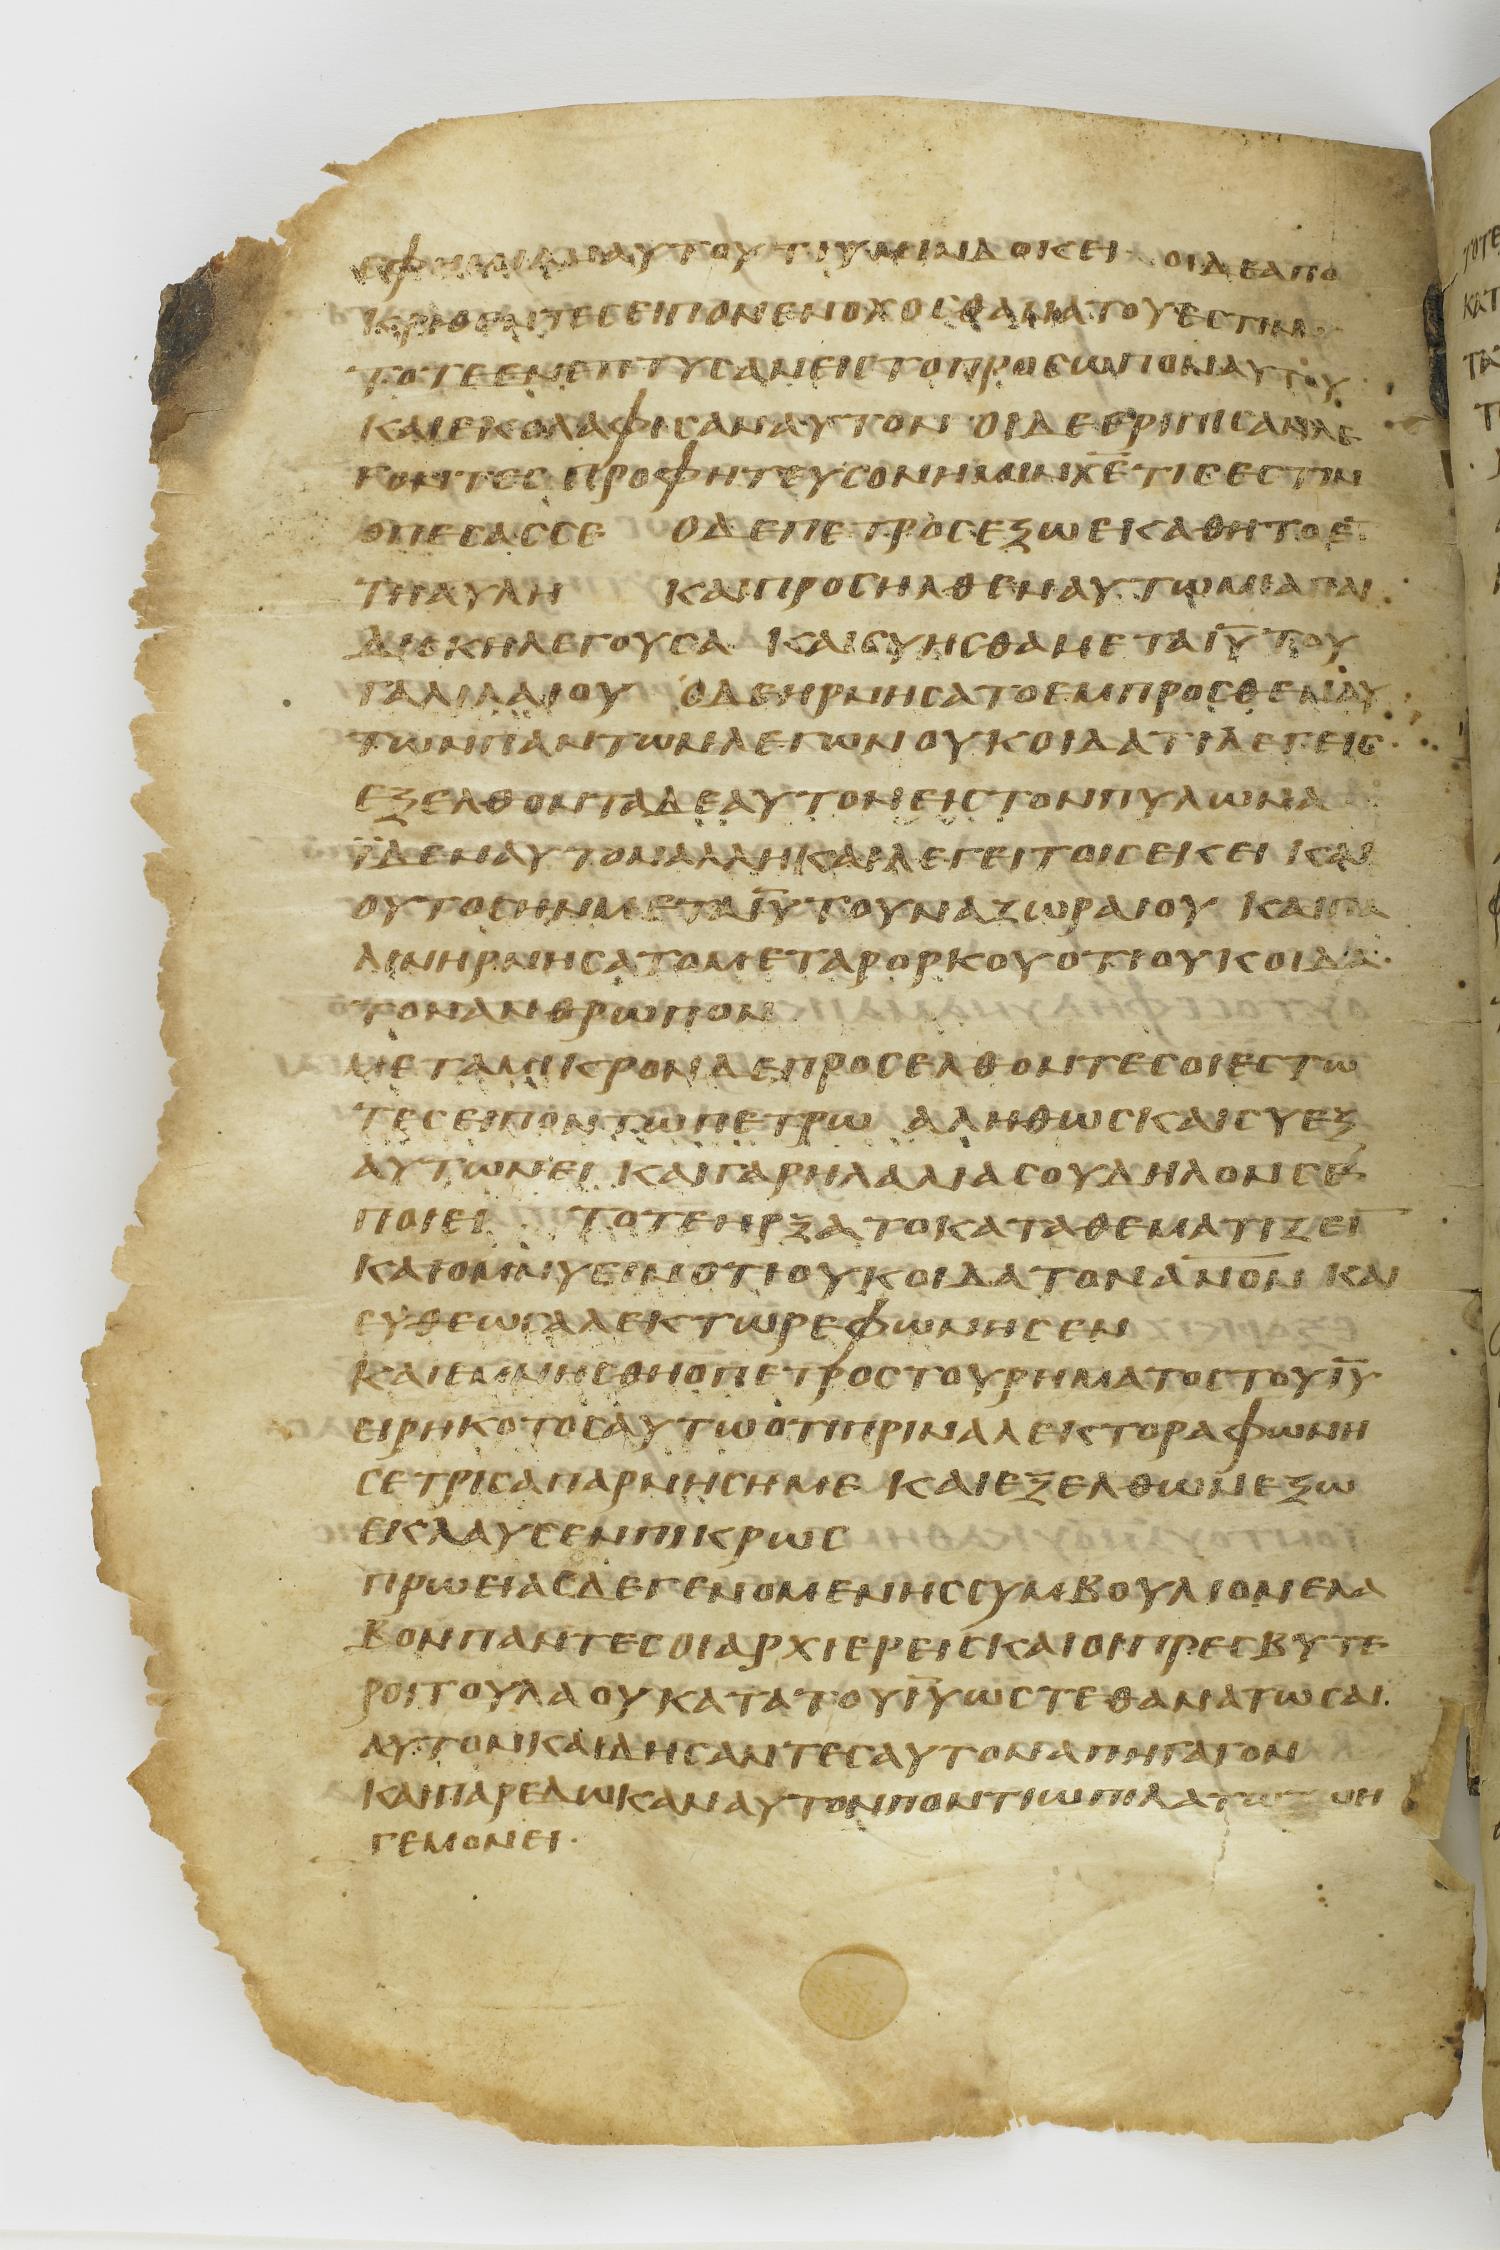 αυτου τι υμιν δοκει οι δε απο
κριθεντες ειπον ενοχος θανατου εστιν
τοτε ενεπτυσαν εις το προσωπον αυτου
και εκολαφισαν αυτον οι δε εριπισαν λε
γοντες προφητευσον ημιν χε τις εστιν
ο πεσας σε ο δε πετρος εξω εκαθητο ε̅
τη αυλη και προσηλθεν αυτω μια παι
δισκη λεγουσα και συ ησθα μετα ιυ̅ του
γαλιλαιου ο δε ηρνησατο εμπροσθεν αυ
των παντων λεγων ουκ οιδα τι λεγεις
εξελθοντα δε αυτον εις τον πυλωνα
ϊδεν αυτον αλλη και λεγει τοις εκει και
ουτος ην μετα ιυ̅ του ναζωραιου και πα
λιν ηρνησατο μετα ρορκου οτι ουκ οιδα
τον ανθρωπον
μετα μικρον δε προσελθοντες οι εστω
τες ειπον τω πετρω αληθως και συ εξ
αυτων ει και γαρ η λαλια σου δηλον σε
ποιει τοτε ηρξατο καταθεματιζει̅
και ομνυειν οτι ουκ οιδα τον ανο̅ν και
ευθεως αλεκτωρ εφωνησεν
και εμνησθη ο πετρος του ρηματος του ιυ̅
ειρηκοτος αυτω οτι πριν αλεκτορα φωνη
σε τρις απαρνηση με και εξελθων εξω
εκλαυσεν πικρως
πρωειας δε γενομενης συμβουλιον ελα
βον παντες οι αρχιερεις και οι πρεσβυτε
ροι του λαου κατα του ιυ̅ ωστε θανατωσαι
αυτον και δησαντες αυτον απηγαγον
και παρεδωκαν αυτον ποντιω πιλατω τω η
γεμονει